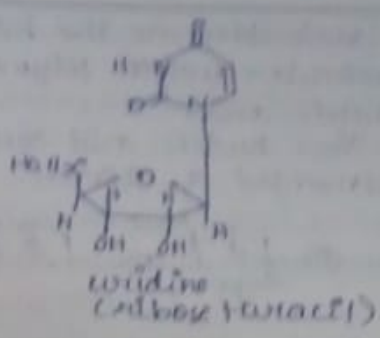 H
N
O
N
HOH₂C
O
H
H
OH
OH
uridine
(ribose + uracil)